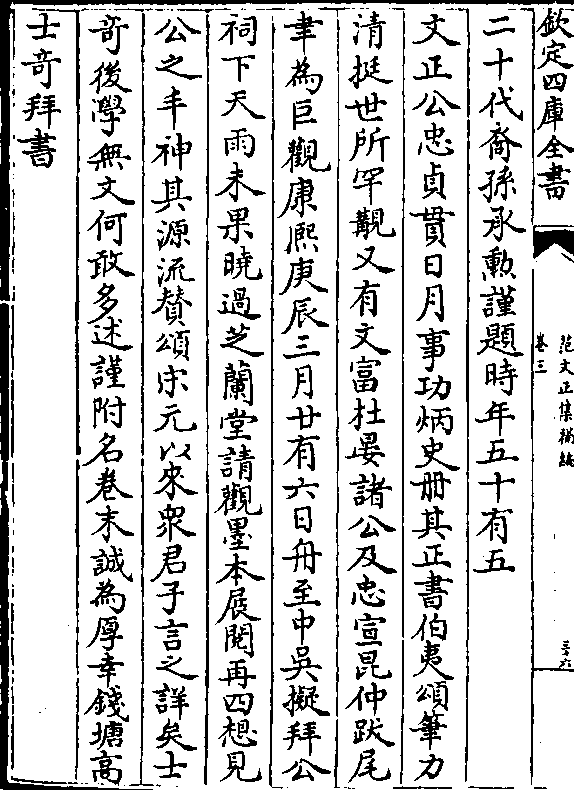 欽定四庫全書
范文正集補編
卷三
三十六
二十代裔孫承勲謹題時年五十有五
文正公忠貞貫日月事功炳史册其正書伯夷頌筆力
清挺世所罕覯又有文富杜晏諸公及忠宣昆仲跋尾
聿為巨觀康熈庚辰三月廿有六日舟至中吳擬拜公
祠下天雨未果曉過芝蘭堂請觀墨本展閱再四想見
公之丰神其源流賛頌宋元以來衆君子言之詳矣士
竒後學無文何敢多述謹附名卷末誠為厚幸錢塘高
士竒拜書